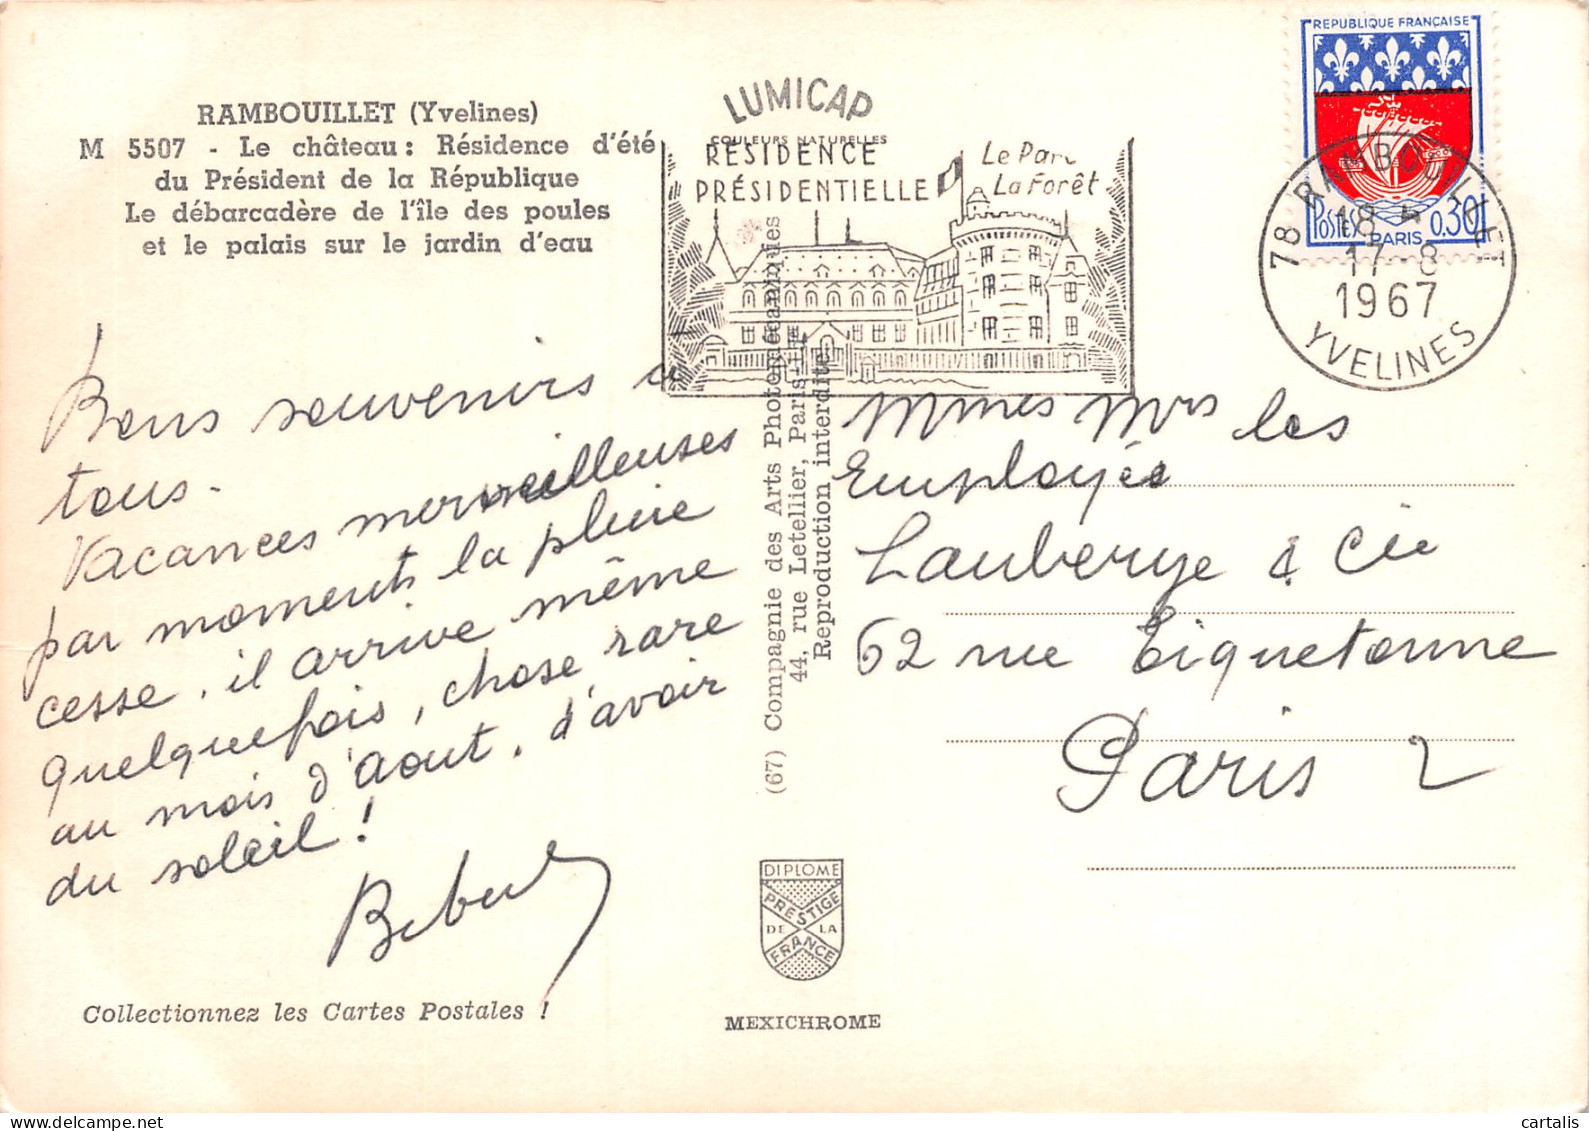 RAMBOUILLET (Yvelines)
M 5507 - Le château : Résidence d'été
du Président de la République
Le débarcadère de l'île des poules
et le palais sur le jardin d'eau
LUMICAP
COULEURS NATURELLES
RÉSIDENCE
PRÉSIDENTIELLE
Le Parc
La Forêt
REPUBLIQUE FRANÇAISE
POSTES
PARIS
0,30
78 RAMBOUILLET
18 H
17-8
1967
YVELINES
Bons souvenirs à
tous.
Vacances merveilleuses
par moments la pluie
cesse, il arrive même
quelquefois, chose rare
au mois d'aout, d'avoir
du soleil !
Mmes Mrs les
Employés
Lauberye & Cie
62 rue Tiquetonne
Paris 2
(67) Compagnie des Arts Photomécaniques
44, rue Letellier, Paris-15e
Reproduction interdite
DIPLOME
PRESTIGE
DE LA
FRANCE
MEXICHROME
Collectionnez les Cartes Postales !
cartalis
www.delcampe.net